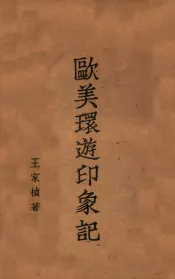 歐美環遊印象記
王家楨著